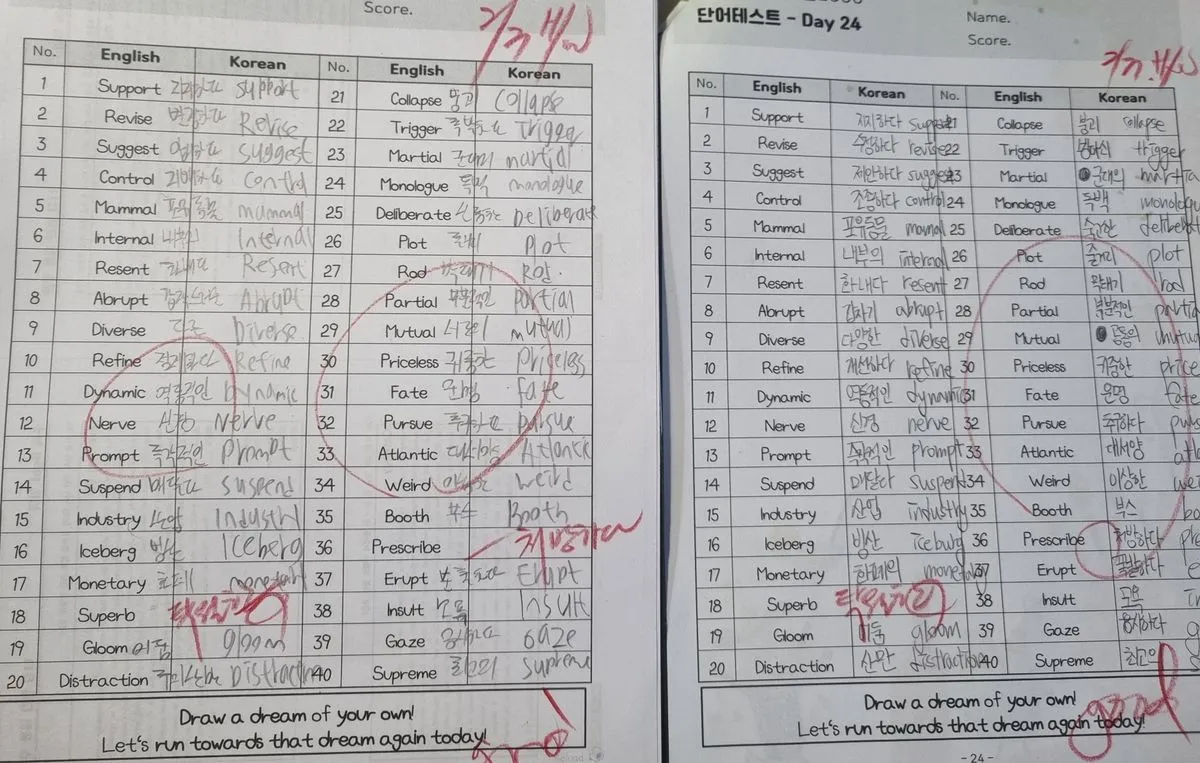 Score.
No. English Korean No. English Korean
1 Support 지지하다 support 21 Collapse 붕괴 Collapse
2 Revise Revise 22 Trigger 촉발하다 Trigger
3 Suggest suggest 23 Martial martial
4 Control control 24 Monologue 독백 monologue
5 Mammal 포유동물 mummal 25 Deliberate Deliberate
6 Internal 내부의 Internal 26 Plot Plot
7 Resent 화내다 Resent 27 Rod 막대기
8 Abrupt Abrupt 28 Partial 부분적인 partial
9 Diverse Diverse 29 Mutual
10 Refine Refine 30 Priceless 귀중한 Priceless
11 Dynamic 역동적인 Dynamic 31 Fate 운명 fate
12 Nerve 신경 Nerve 32 Pursue 추구하다 pursue
13 Prompt 즉각적인 Prompt 33 Atlantic 대서양 Atlantic
14 Suspend 매달다 suspend 34 Weird 이상한 weird
15 Industry 산업 35 Booth 부스 Booth
16 Iceberg 빙산 Iceberg 36 Prescribe 처방하다
17 Monetary 화폐 37 Erupt 분출하다 Erupt
18 Superb 38 Insult 모욕 Insult
19 Gloom 어둠 gloom 39 Gaze 응시하다 Gaze
20 Distraction 주의산만 Distraction 40 Supreme 최고의 supreme
Draw a dream of your own!
Let's run towards that dream again today!
단어테스트 - Day 24
Name.
Score.
No. English Korean No. English Korean
1 Support 지지하다 support 21 Collapse 붕괴 collapse
2 Revise 수정하다 revise 22 Trigger 방아쇠 trigger
3 Suggest 제안하다 suggest 23 Martial 군대의
4 Control 조종하다 control 24 Monologue 독백 monologue
5 Mammal 포유동물 25 Deliberate
6 Internal 내부의 internal 26 Plot 줄거리 plot
7 Resent 화내다 resent 27 Rod 막대기
8 Abrupt 갑자기 abrupt 28 Partial 부분적인
9 Diverse 다양한 diverse 29 Mutual 공동의
10 Refine 개선하다 refine 30 Priceless 귀중한 price
11 Dynamic 역동적인 dynamic 31 Fate 운명 fate
12 Nerve 신경 nerve 32 Pursue 추구하다
13 Prompt 즉각적인 prompt 33 Atlantic 대서양
14 Suspend 매달다 suspend 34 Weird 이상한
15 Industry 산업 industry 35 Booth 부스
16 Iceberg 빙산 iceburg 36 Prescribe 처방하다
17 Monetary 화폐의 37 Erupt 폭발하다
18 Superb 38 Insult 모욕
19 Gloom 어둠 gloom 39 Gaze 응시하다
20 Distraction 산만 distraction 40 Supreme 최고의
Draw a dream of your own!
Let's run towards that dream again today!
good
- 24 -